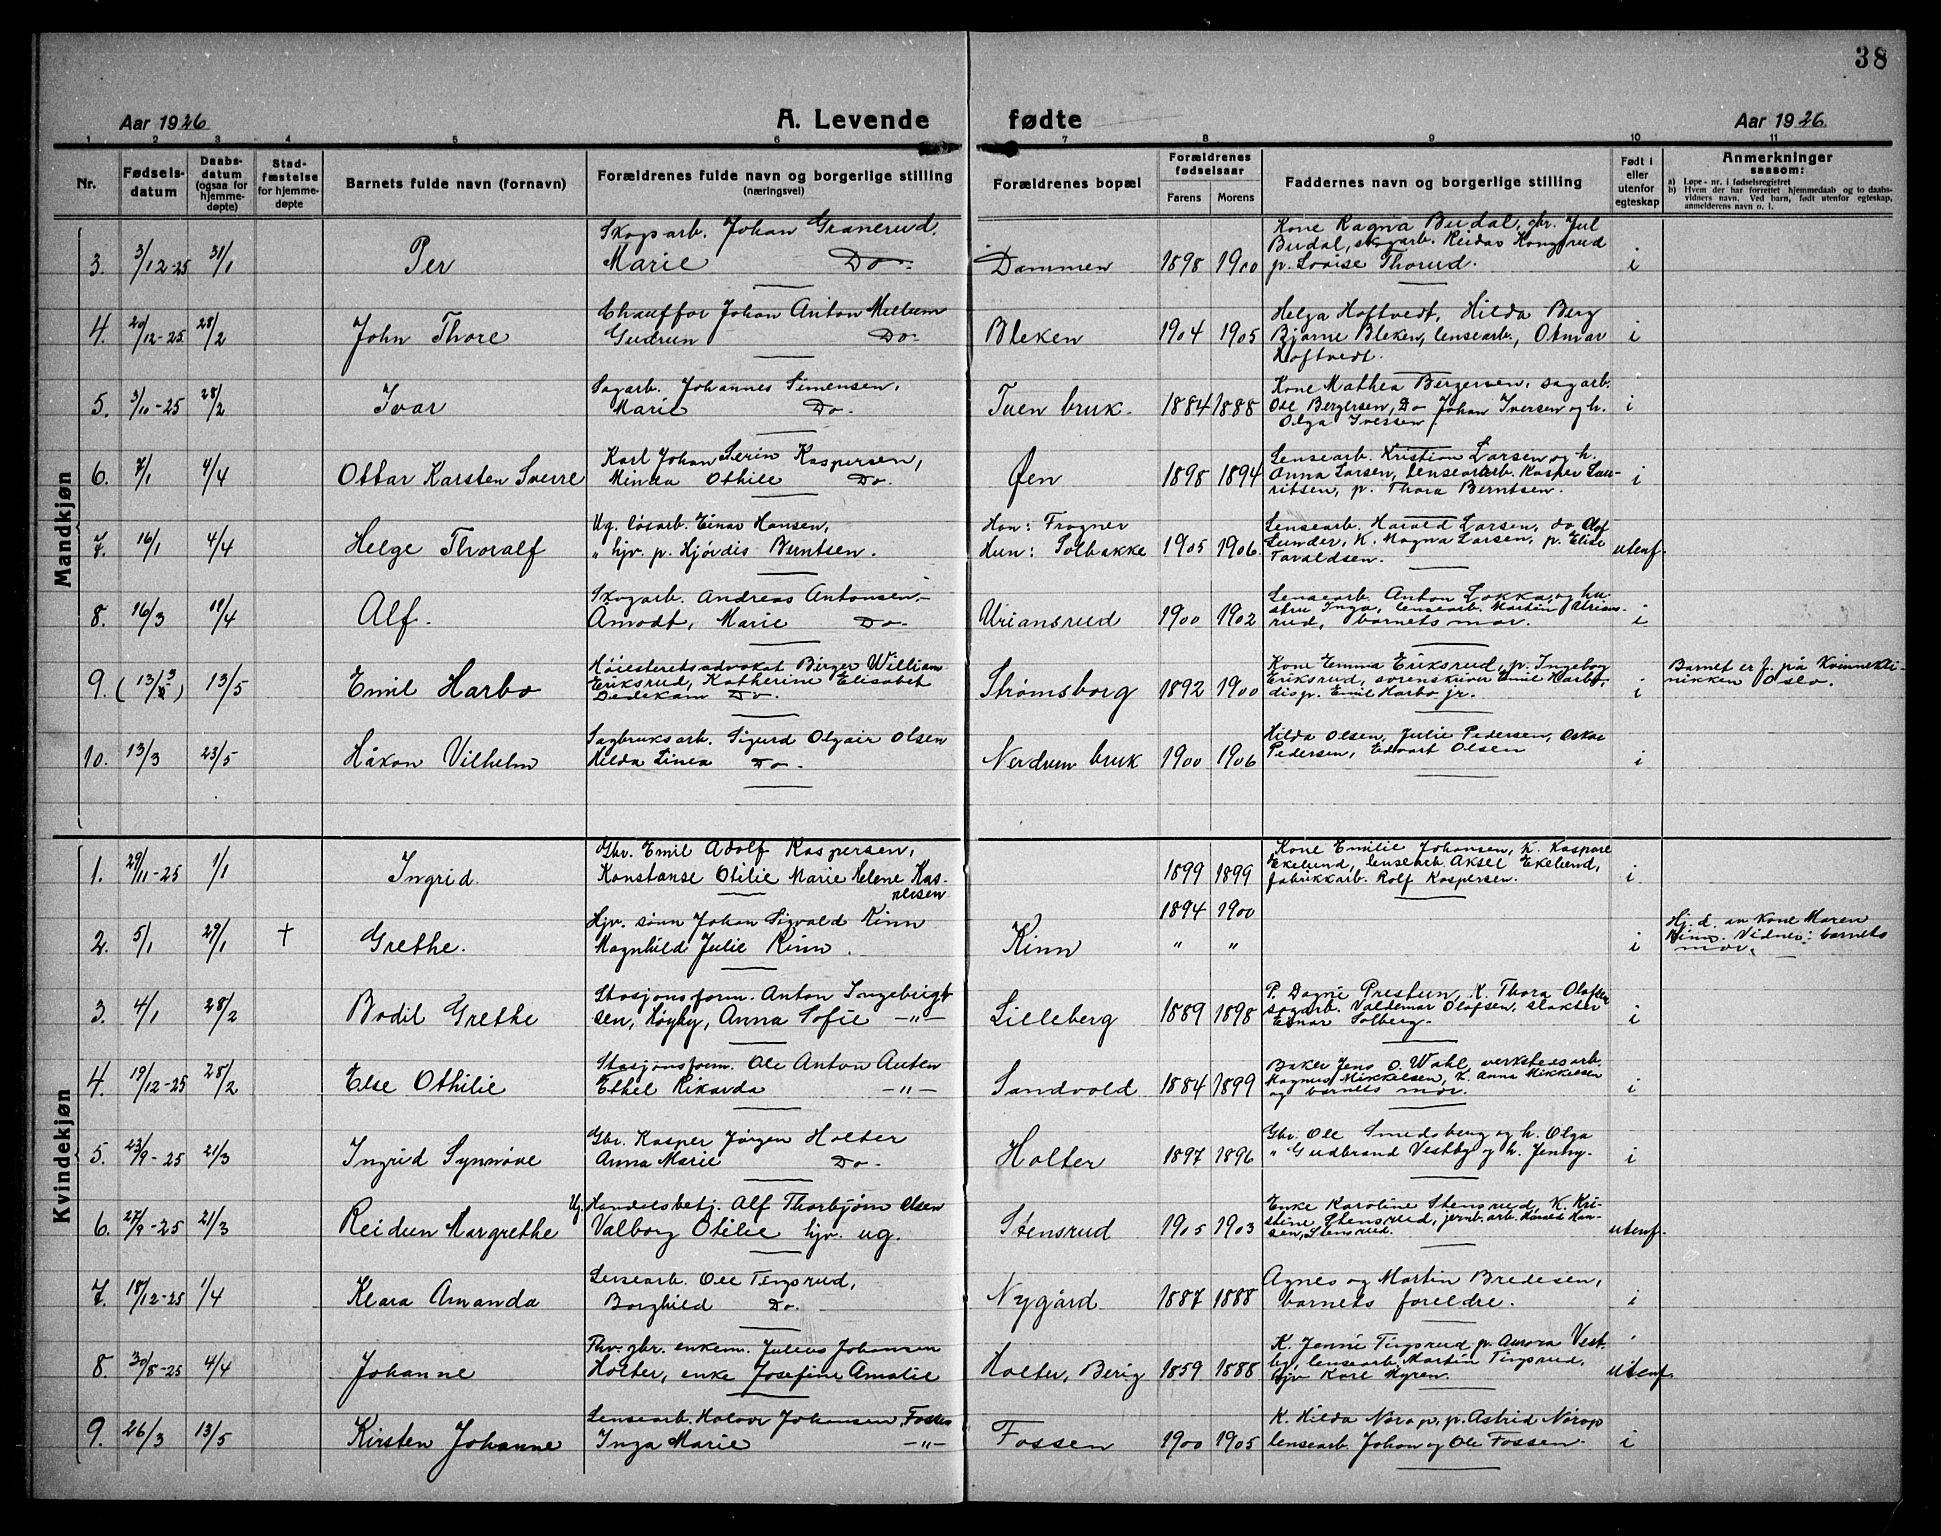 38
Aar 1926
A. Levende fødte
Aar 1926.
1 2 3 4 5 6 7 8 9 10 11
Nr.
Fødselsdatum
Daabsdatum (ogsaa for hjemmedøpte)
Stadfæstelse for hjemmedøpte
Barnets fulde navn (fornavn)
Forældrenes fulde navn og borgerlige stilling
(næringsvei)
Forældrenes bopæl
Forældrenes fødselsaar
Farens Morens
Faddernes navn og borgerlige stilling
Født i eller utenfor egteskap
Anmerkninger
saasom:
a) Løpe-nr. i fødselsregistret
b) Hvem der har forrettet hjemmedaab og to daabsvidners navn. Ved barn, født utenfor egteskap, anmelderens navn o. l.
Mandkjøn
3. 3/12-25 31/1 Per
Skogsarb. Johan Granerud,
Marie Do.
Dammen 1898 1900
Kone Ragna Budal, gbr. Jul
Budal, skogarb. Reidar Kongsrud
p. Lovise Thorud.
i
4. 20/12-25 28/2 John Thore
Chauffør Johan Anton Mellum
Gudrun Do.
Bleken 1904 1905
Helga Hoftvedt, Hilda Berg
Bjarne Bleken, lensearb., Otmar
Hoftvedt.
i
5. 3/10-25 28/2 Ivar
Sagarb. Johannes Simensen,
Marie Do.
Tuen bruk. 1884 1888
Kone Mathea Bergersen, sagarb.
Ole Bergersen, Do Johan Iversen og h.
Olga Iversen
i
6. 7/1 4/4 Ottar Karsten Sverre
Karl Johan Serin Kaspersen,
Minda Othile Do.
Øen 1898 1894
Lensearb. Kristian Larsen og h.
Anna Larsen, lensearb. Kasper Lau-
ritsen, p. Thora Berntsen.
i
7. 16/1 4/4 Helge Thoralf
Ug. løsarb. Einar Hansen,
" hjv. p. Hjørdis Berntsen.
Han: Frogner
Hun: Solbakke 1905 1906.
Lensearb. Harald Larsen, do Olof
Sunder, K. Magna Larsen, p. Elise
Tavaldsen.
utenf.
8. 16/3 19/4 Alf.
Skogarb. Andreas Antonsen
Åmodt, Marie Do.
Uriansrud 1900 1902
Lensearb. Anton Løkka, og hu-
stru Inga, lensearb. Martin Urians-
rud, barnets mor.
i
9. (13/3) 13/5 Emil Harbo
Høiesteretsadvokat Birger William
Eriksrud, Katherine Elisabet
Do.
Strømsborg 1892 1900
Kone Emma Eriksrud, p. Ingeborg
Eriksrud, sorenskriver Emil Harbo,
disp. Emil Harbo jr.
i
Barnet er f. på Kvinnekli-
nikken Oslo.
10. 13/3 23/5 Håkon Vilhelm
Sagbruksarb. Sigurd Olgair Olsen
Hilda Linea Do.
Nerdrum bruk 1900 1906
Hilda Olsen, Julie Pedersen, Oskar
Pedersen, Edvart Olsen
i
Kvindekjøn
1. 29/11-25 1/1 Ingrid.
Gbr. Emil Adolf Kaspersen,
Konstanse Otilie Marie Helene Kas-
persen
1899 1899
Kone Emilie Johansen, K. Kaspare
Ekelund, lensearb. Aksel Ekelund,
fabrikkarb. Rolf Kaspersen.
i
2. 5/1 29/1 † Grethe.
Hjv. sønn Johan Sigvald Kinn
Magnhild Julie Kinn.
Kinn
1894 1900
" "
i
Hj. d. av Kone Maren
Kinn. Vidner: barnets
mor.
3. 4/1 28/2 Bodil Grethe
Stasjonsform. Anton Ingebrigt-
sen, Høyby, Anna Sofie -"-
Lilleberg 1889 1898
P. Dagne Prestun, K. Thora Olafsen
sagarb. Valdemar Olafsen, slakter
Einar Solberg.
i
4. 19/12-25 28/2 Else Othilie
Stasjonsform. Ole Anton Auten
Ethel Rikarda -"-
Sandvold 1884 1899
Baker Jens O. Wahl, verkstedsarb.
Magnus Mikkelsen, K. Anna Mikkelsen
og barnets mor.
i
5. 23/9-25 21/3 Ingrid Synnøve
Gbr. Kasper Jørgen Holter
Anna Marie Do.
Holter 1897 1896
Gbr. Ole Smedsberg og h. Olga
" Gudbrand Vestby og h. Jenny.
i
6. 27/9-25 21/3 Reidun Margrethe
Ug. Handelsbetj. Alf Thorbjørn Olsen
Valborg Otilie hjv. ug.
Stensrud 1905 1903
Enke Karoline Stensrud, K. Kri-
stine Stensrud, jernb.arb. Harald Han-
sen, Stensrud.
utenf.
7. 18/12-25 1/4 Klara Amanda
Lensearb. Ole Tingsrud,
Borghild Do.
Nygård 1887 1888
Agnes og Martin Bredesen,
barnets foreldre.
i
8. 30/8-25 4/4 Johanne
Fhv. gbr. enkem. Julius Johansen
Holter, enke Josefine Amalie
Holter, Berig 1859 1888
K. Jenni Tingsrud, p. Aurora Vest-
by, lensearb. Martin Tingsrud,
hjv Karl Myren.
utenf.
9. 26/3 13/5 Kirsten Johanne
Lensearb. Halvor Johansen, Fossen
Inga Marie -"-
Fossen 1900 1905
K. Hilda Norap, p. Astrid Norap
lensearb. Johan og Ole Fossen.
i